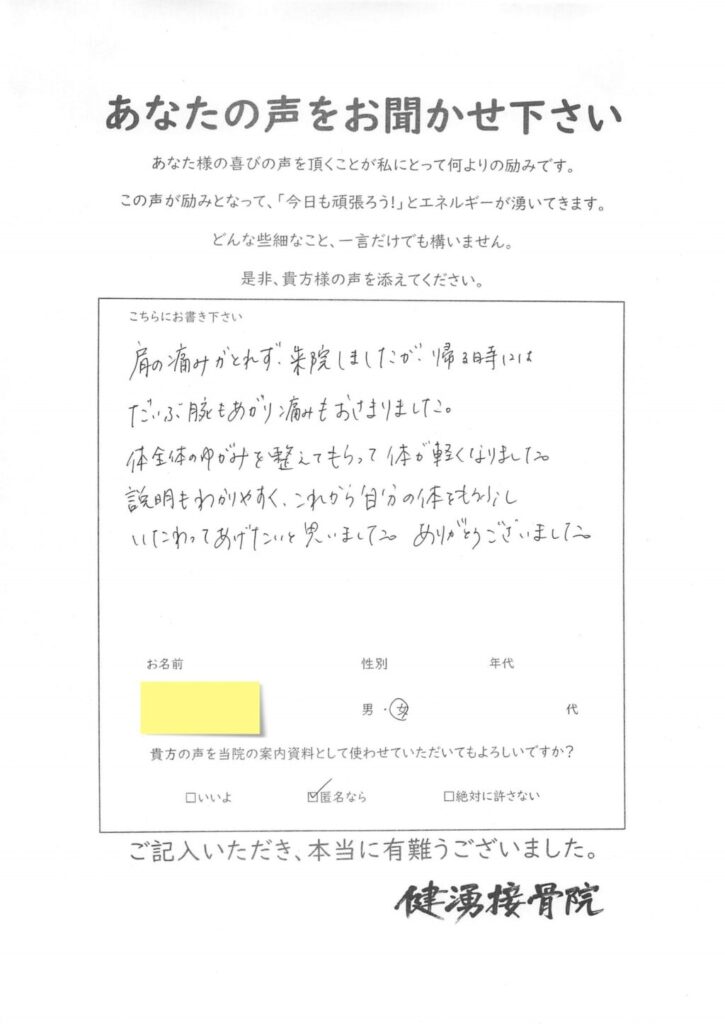 あなたの声をお聞かせ下さい
あなた様の喜びの声を頂くことが私にとって何よりの励みです。
この声が励みとなって、「今日も頑張ろう!」とエネルギーが湧いてきます。
どんな些細なこと、一言だけでも構いません。
是非、貴方様の声を添えてください。
こちらにお書き下さい
肩の痛みがとれず、来院しましたが、帰る時には
だいぶ腕もあがり痛みもおさまりました。
体全体のゆがみを整えてもらって体が軽くなりました。
説明もわかりやすく、これから自分の体をもう少し
いたわってあげたいと思いました。ありがとうございました。
お名前 性別 年代
男・女 代
貴方の声を当院の案内資料として使わせていただいてもよろしいですか？
□いいよ ☑匿名なら □絶対に許さない
ご記入いただき、本当に有難うございました。
健湧接骨院